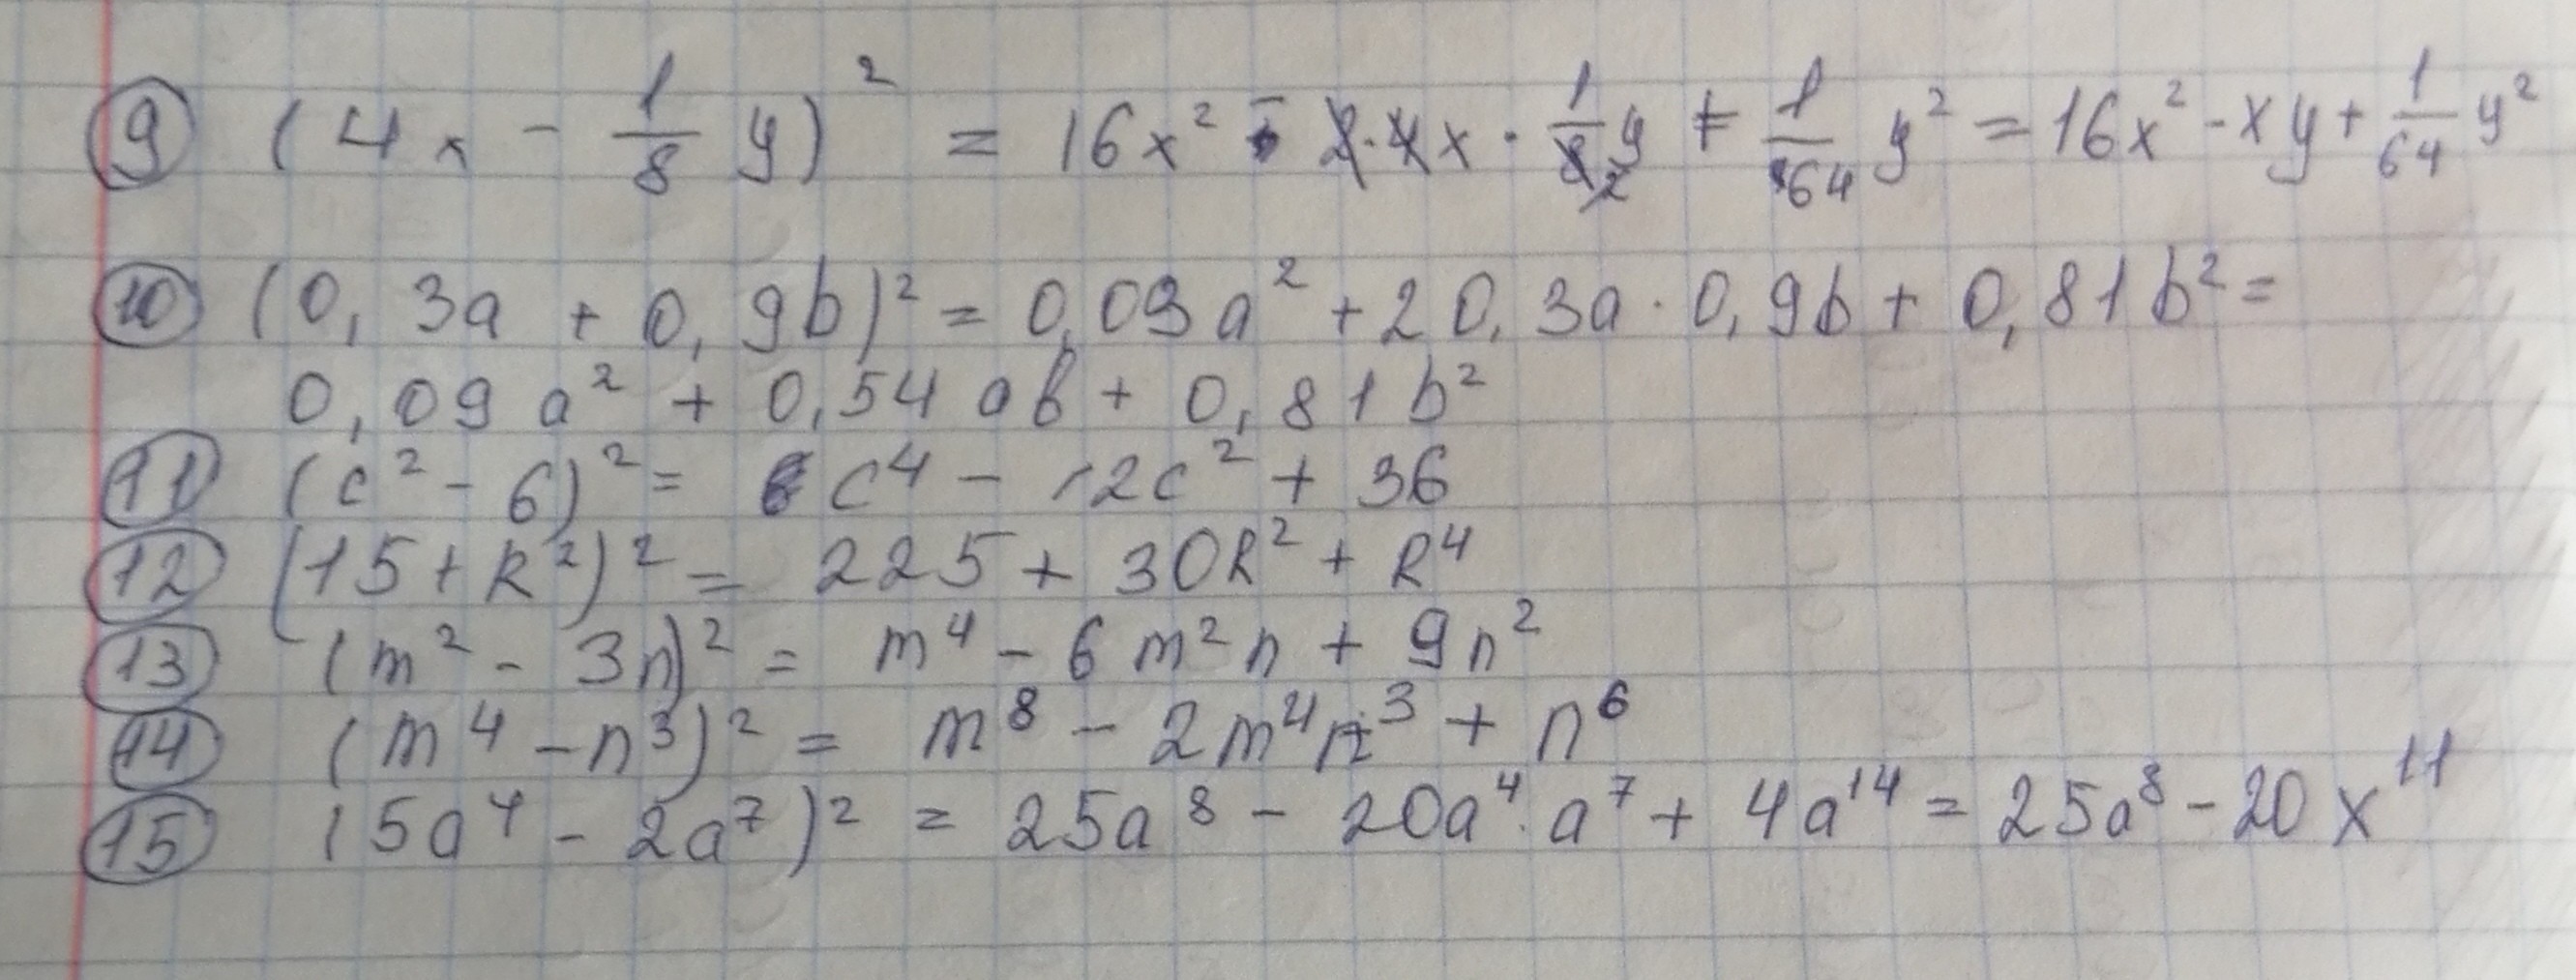 9 (4x - 1/8 y)² = 16x² - 2·4x · 1/8 y + 1/64 y² = 16x² - xy + 1/64 y²
10 (0,3a + 0,9b)² = 0,09a² + 2 0,3a · 0,9b + 0,81b² =
0,09a² + 0,54ab + 0,81b²
11 (c² - 6)² = c⁴ - 12c² + 36
12 (15 + k²)² = 225 + 30k² + k⁴
13 (m² - 3n)² = m⁴ - 6m²n + 9n²
14 (m⁴ - n³)² = m⁸ - 2m⁴n³ + n⁶
15 (5a⁴ - 2a⁷)² = 25a⁸ - 20a⁴·a⁷ + 4a¹⁴ = 25a⁸ - 20x¹¹